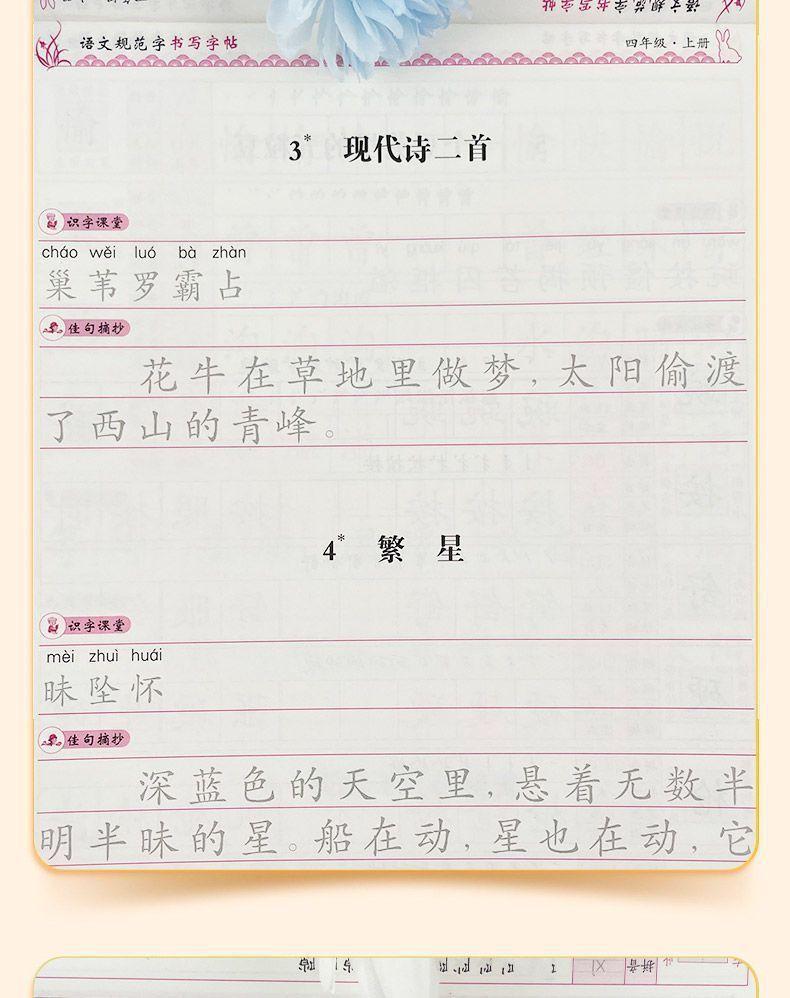 语文规范字书写字帖
四年级·上册
3* 现代诗二首
识字课堂
cháo wěi luó bà zhàn
巢苇罗霸占
佳句摘抄
花牛在草地里做梦，太阳偷渡
了西山的青峰。
4* 繁星
识字课堂
mèi zhuì huái
昧坠怀
佳句摘抄
深蓝色的天空里，悬着无数半
明半昧的星。船在动，星也在动，它